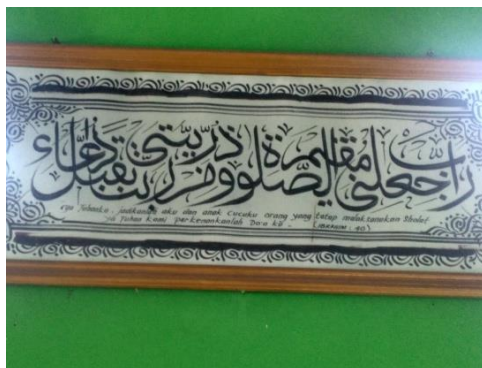 رب اجعلني مقيم الصلوة ومن ذريتي ربنا وتقبل دعاء
ya Tuhanku, jadikanlah aku dan anak cucuku orang yang tetap melaksanakan Sholat
ya Tuhan kami perkenankanlah Do'a
: 40)